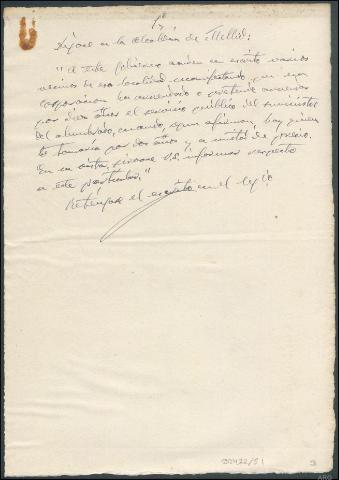 Dígase en la alcaldía de Mellid:
"A este Gobierno acuden en escrito varios
vecinos de esa localidad manifestando que esa
Corporación ha concertado o pretende concertar
por diez años el servicio público del suministro
del alumbrado, cuando, según afirman, hay quien
lo tomaría por dos años y a mitad de precio.
En su vista, sírvase Vd. informar respecto
a este particular."
Reténgase el escrito en el